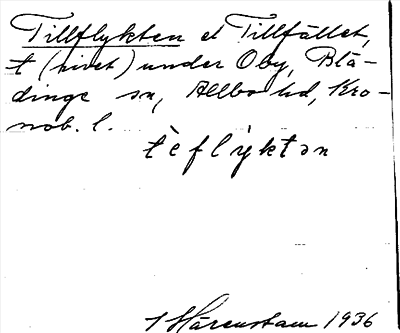 Tillflykten el Tillfället,
t (rivet) under Oby, Blä-
dinge sn, Allbo hd, Kro-
nob. l.
tèflýktən
1 Hårenstam 1936